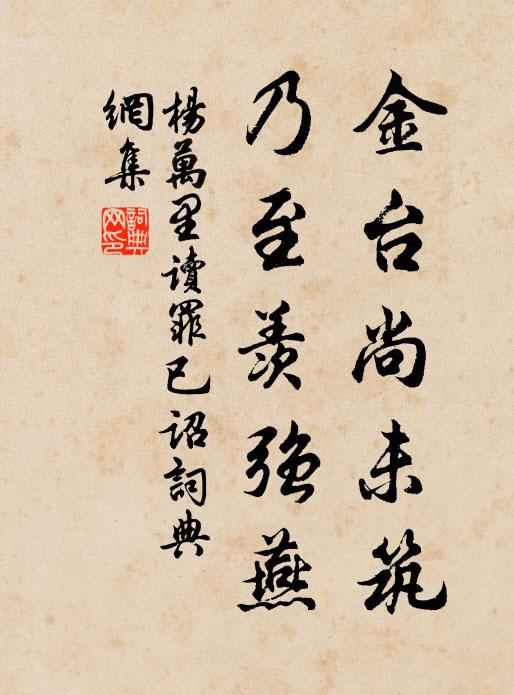 金台尚未筑
乃至羡強燕
楊萬里讀罪己詔詞典
網集
詞典
网印